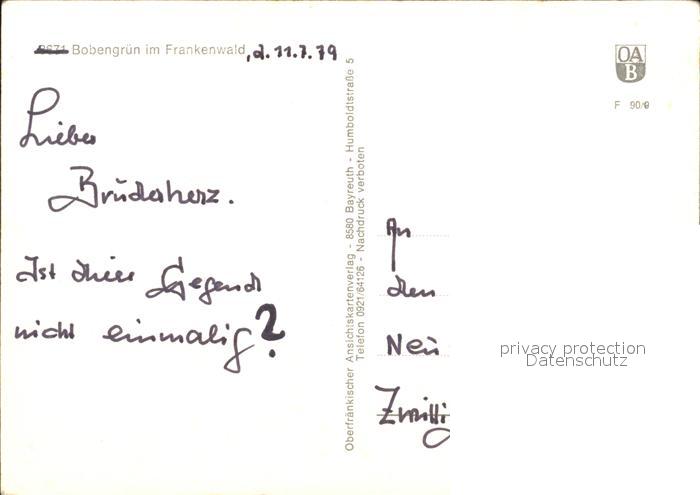 8671 Bobengrün im Frankenwald, d. 11.7.79
Lieber
Brüderherz.
Ist diese Gegend
nicht einmalig?
Oberfränkischer Ansichtskartenverlag - 8580 Bayreuth - Humboldtstraße 5
Telefon 0921/64126 - Nachdruck verboten
OA
B
F 90/9
An
den
Neu
Zwilli
privacy protection
Datenschutz